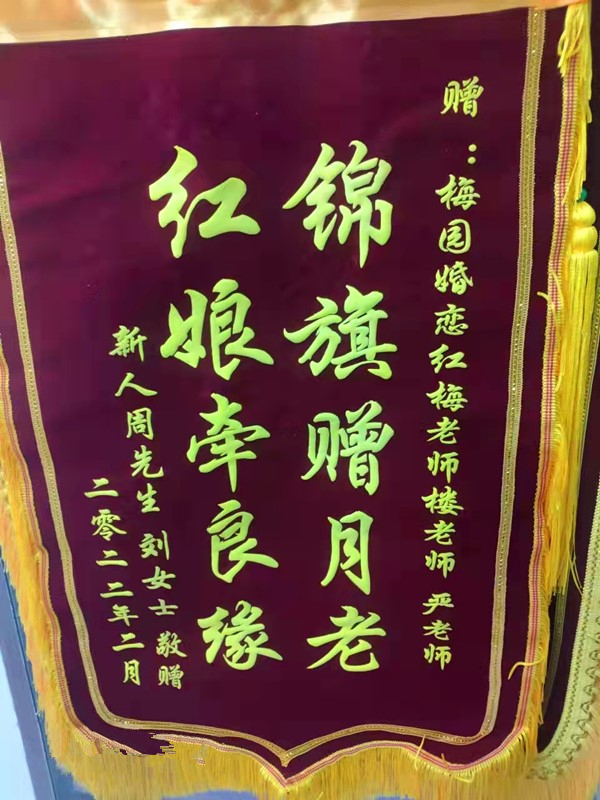 赠：梅园婚恋红梅老师楼老师 严老师
锦旗赠月老
红娘牵良缘
新人周先生 刘女士 敬赠
二零二二年二月